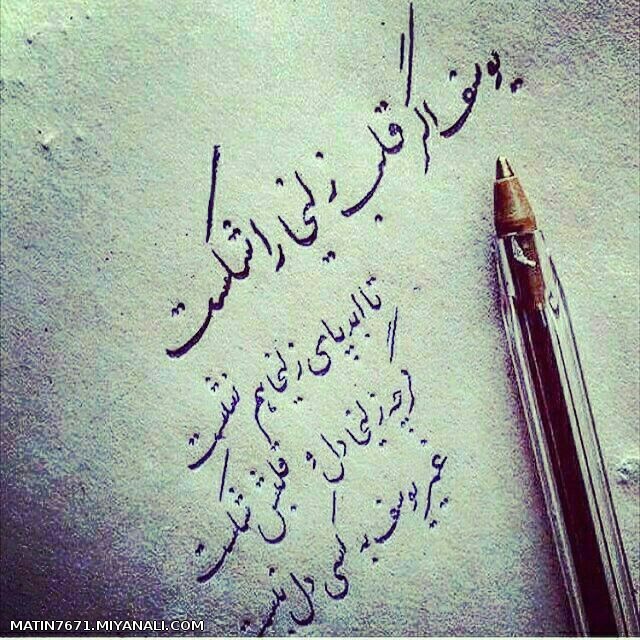 یوسف اگر قلب زلیخا را شکست
تا ابد پای زلیخا هم نشست
گرچه زلیخا دل و قلبش شکست
غیر یوسف به کسی دل نبست
MATIN7671.MIYANALI.COM